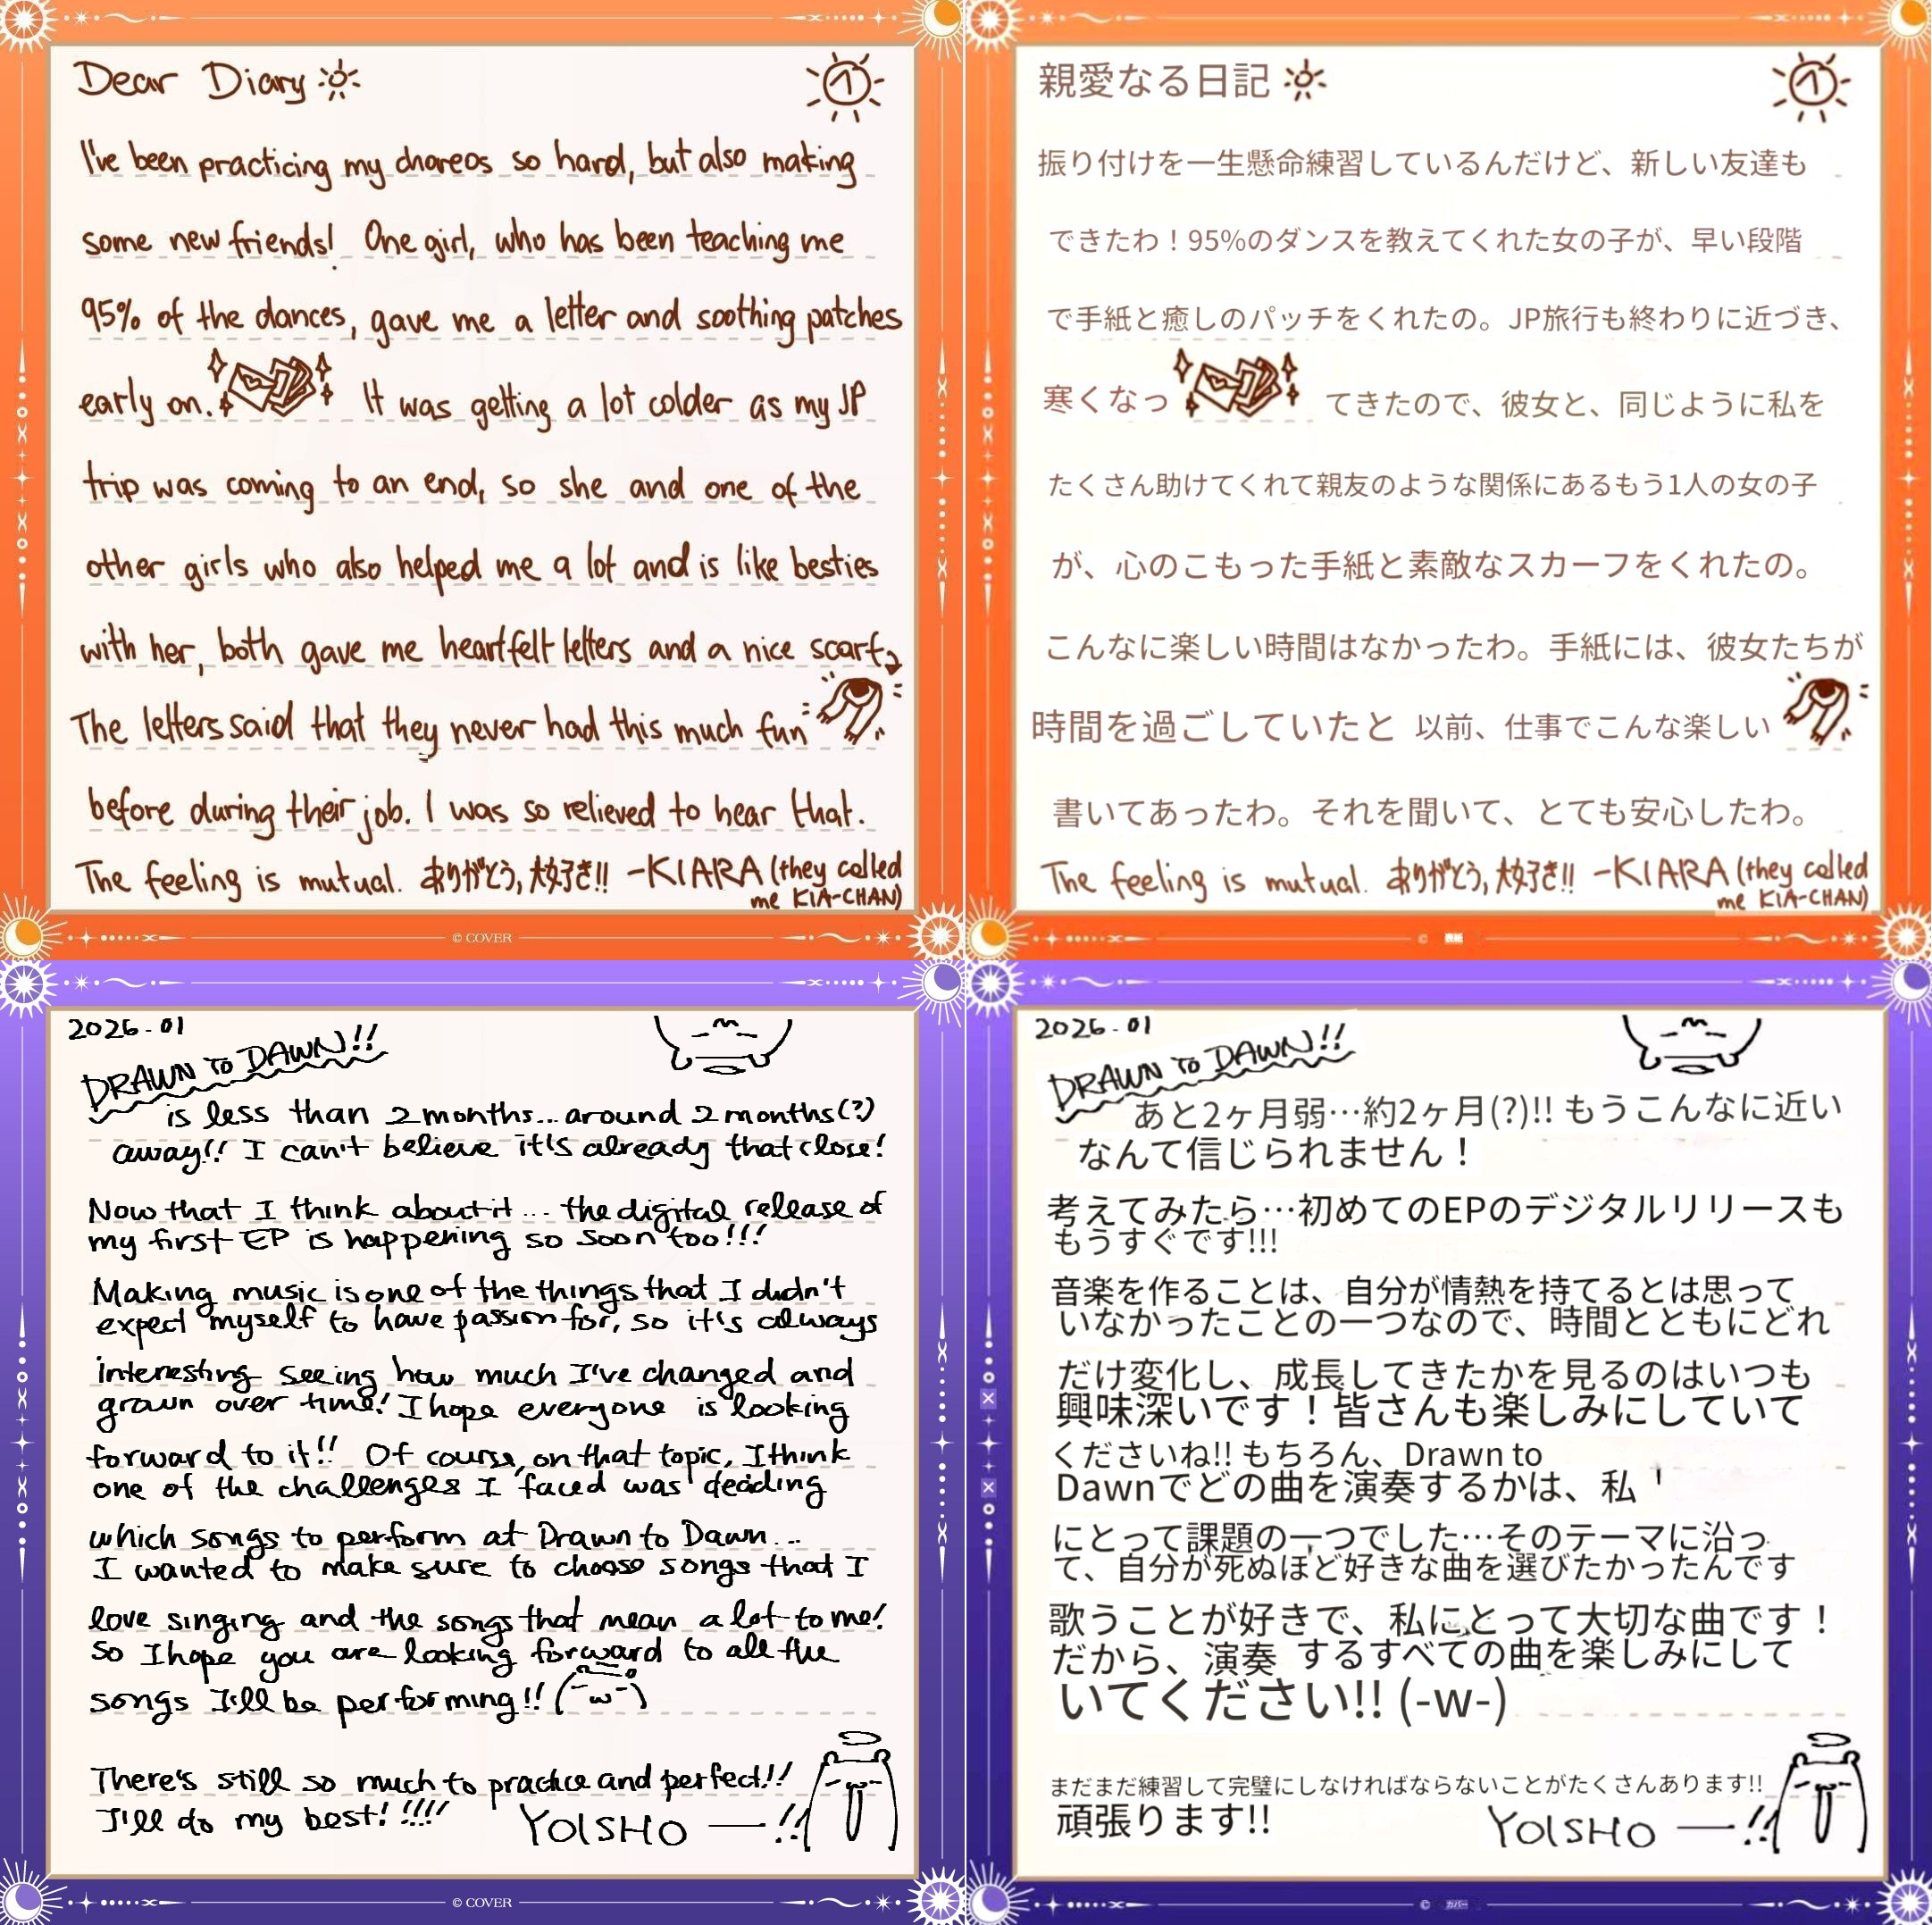 Dear Diary
I've been practicing my choreos so hard, but also making
some new friends! One girl, who has been teaching me
95% of the dances, gave me a letter and soothing patches
early on. It was getting a lot colder as my JP
trip was coming to an end, so she and one of the
other girls who also helped me a lot and is like besties
with her, both gave me heartfelt letters and a nice scarf.
The letters said that they never had this much fun
before during their job. I was so relieved to hear that.
The feeling is mutual. ありがとう, 大好き!! -KIARA (they called
me KIA-CHAN)
© COVER
親愛なる日記
振り付けを一生懸命練習しているんだけど、新しい友達も
できたわ！95%のダンスを教えてくれた女の子が、早い段階
で手紙と癒しのパッチをくれたの。JP旅行も終わりに近づき、
寒くなっ てきたので、彼女と、同じように私を
たくさん助けてくれて親友のような関係にあるもう1人の女の子
が、心のこもった手紙と素敵なスカーフをくれたの。
こんなに楽しい時間はなかったわ。手紙には、彼女たちが
時間を過ごしていたと 以前、仕事でこんな楽しい
書いてあったわ。それを聞いて、とても安心したわ。
The feeling is mutual. ありがとう, 大好き!! -KIARA (they called
me KIA-CHAN)
© 表紙
2026-01
DRAWN TO DAWN!!
is less than 2 months... around 2 months(?)
away!! I can't believe it's already that close!
Now that I think about it... the digital release of
my first EP is happening so soon too!!!
Making music is one of the things that I didn't
expect myself to have passion for, so it's always
interesting seeing how much I've changed and
grown over time! I hope everyone is looking
forward to it!! Of course, on that topic, I think
one of the challenges I faced was deciding
which songs to perform at Drawn to Dawn...
I wanted to make sure to choose songs that I
love singing and the songs that mean a lot to me!
So I hope you are looking forward to all the
songs I'll be performing!! (-w-)
There's still so much to practice and perfect!!
I'll do my best!!!!!
YOISHO —!!
© COVER
2026-01
DRAWN TO DAWN!!
あと2ヶ月弱…約2ヶ月(?)!! もうこんなに近い
なんて信じられません！
考えてみたら…初めてのEPのデジタルリリースも
もうすぐです!!!
音楽を作ることは、自分が情熱を持てるとは思って
いなかったことの一つなので、時間とともにどれ
だけ変化し、成長してきたかを見るのはいつも
興味深いです！皆さんも楽しみにしていて
くださいね!! もちろん、Drawn to
Dawnでどの曲を演奏するかは、私
にとって課題の一つでした…そのテーマに沿っ
て、自分が死ぬほど好きな曲を選びたかったんです
歌うことが好きで、私にとって大切な曲です！
だから、演奏 するすべての曲を楽しみにして
いてください!! (-w-)
まだまだ練習して完璧にしなければならないことがたくさんあります!!
頑張ります!!
YOISHO —!!
© カバー